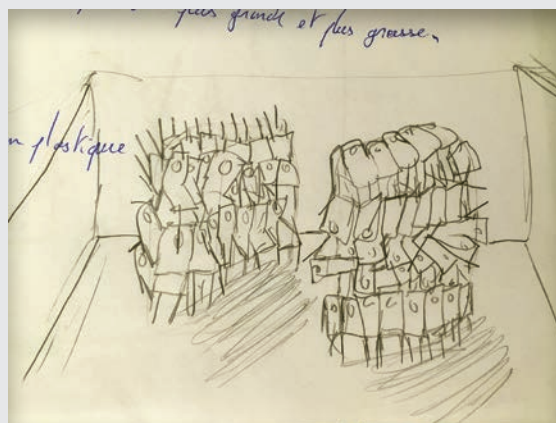 plus grande et plus grosse.
plastique